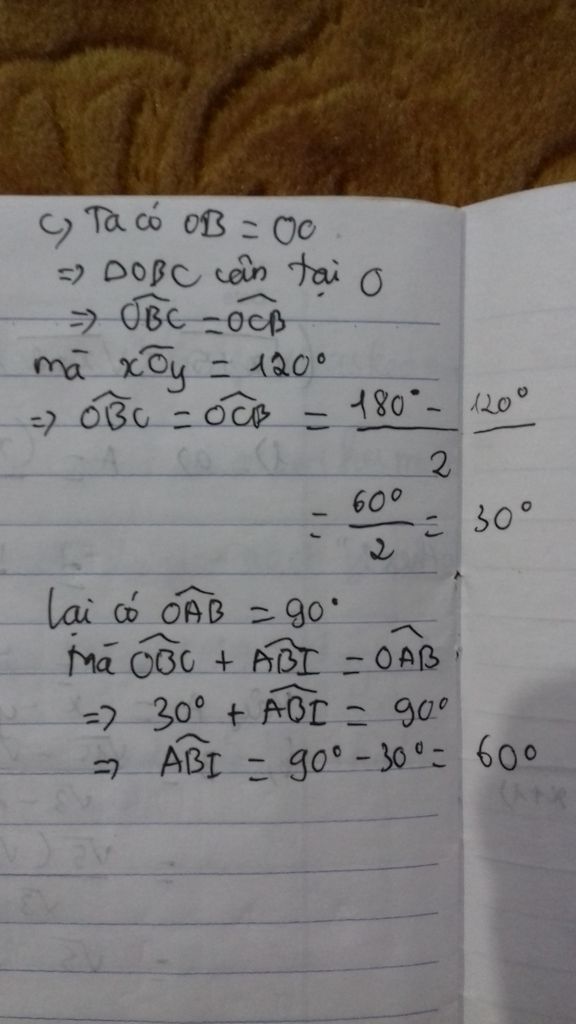 c) Ta có OB = OC
=> ΔOBC cân tại O
=> \widehat{OBC} = \widehat{OCB}
mà \widehat{xOy} = 120°
=> \widehat{OBC} = \widehat{OCB} = \frac{180° - 120°}{2}
= \frac{60°}{2} = 30°
lại có \widehat{OAB} = 90°
mà \widehat{OBC} + \widehat{ABI} = \widehat{OAB}
=> 30° + \widehat{ABI} = 90°
=> \widehat{ABI} = 90° - 30° = 60°